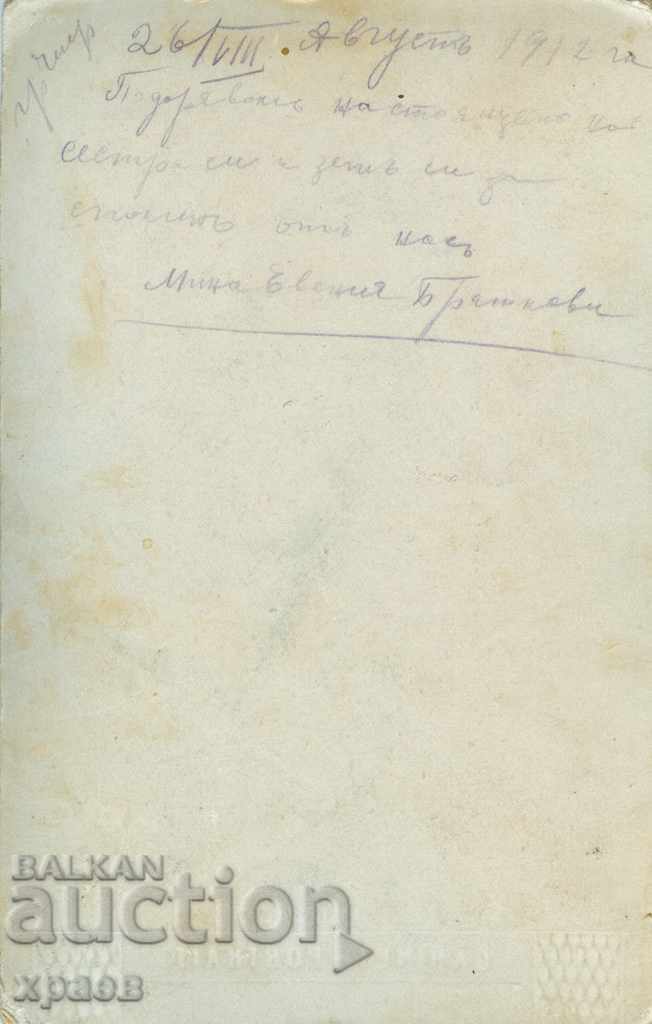 гр Чирп
26/VIII. Августъ 1912 га
Подарявамъ настоящето на
сестра си и зетъ си за
споменъ отъ насъ
Мина Евгения Брат
BALKAN
auction
храов